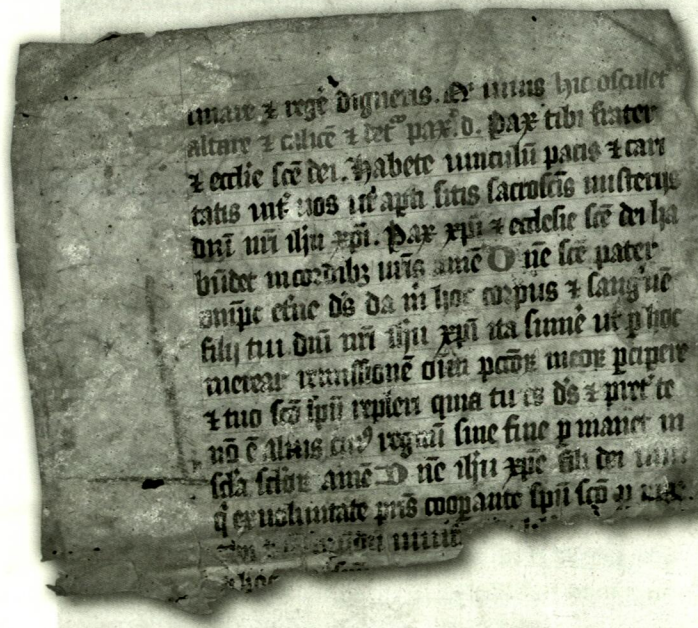 unare ⁊ regē digneris. Et hic osculet
altare ⁊ calicē ⁊ det pax. d. Pax tibi frater
⁊ ecclie scē dei. Habete uinculū pacis ⁊ cari
tatis int̄ uos ut apti sitis sacroscīs misterijs
dnī nrī ihū xpī. Pax xpī ⁊ ecclesie scē dei ha
būdet in cordibꝫ urīs amē D nē scē pater
omīpc etne ds da m̄ hoc corpus ⁊ sanguinē
filij tui dnī nrī ihū xpī ita sumē ut p hoc
merear remissionē oīm pctoꝝ meoꝝ pcipere
⁊ tuo scō spū repleri quia tu es ds ⁊ pret te
nō ē alius cui⁹ regnū sine fine pmanet in
scła scłoꝝ amē D nē ihū xpe fili dei
q̄ ex uoluntate pris coopante spū scō
⁊ hoc